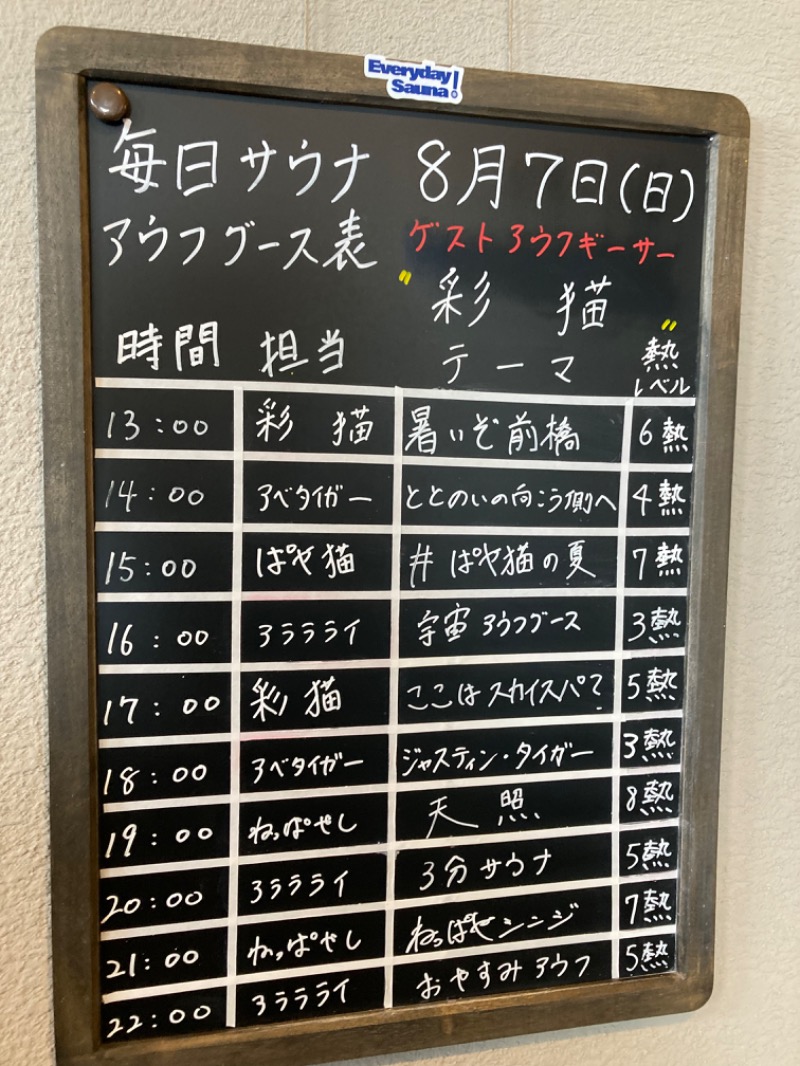 Everyday
Sauna!
毎日サウナ 8月7日(日)
アウフグース表 ゲストアウフギーサー
"彩 猫"
時間 担当 テーマ 熱レベル
13:00 彩 猫 暑いぞ前橋 6熱
14:00 アベタイガー ととのいの向こう側へ 4熱
15:00 ぱや猫 #ぱや猫の夏 7熱
16:00 アララライ 宇宙アウフグース 3熱
17:00 彩 猫 ここはスカイスパ? 5熱
18:00 アベタイガー ジャスティン・タイガー 3熱
19:00 ねっぱやし 天 照 8熱
20:00 アララライ 3分サウナ 5熱
21:00 ねっぱやし ねっぱやシンジ 7熱
22:00 アララライ おやすみアウフ 5熱